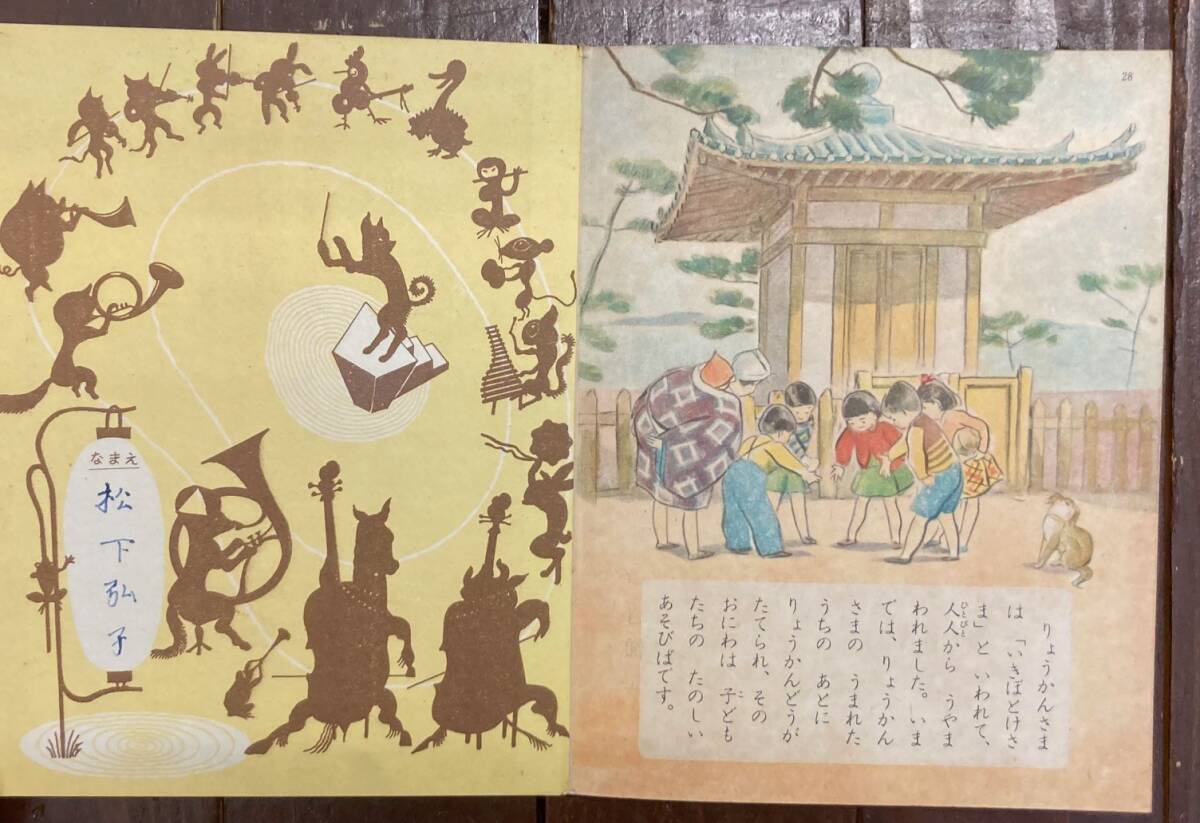 28
りょうかんさま
は 「いきぼとけさ
ま」と いわれて、
人人から うやま
ひとびと
われました。いま
では、りょうかん
さまの うまれた
うちの あとに
りょうかんどうが
たてられ、その
おにわは 子ども
こ
たちの たのしい
あそびばです。
なまえ
松下弘子